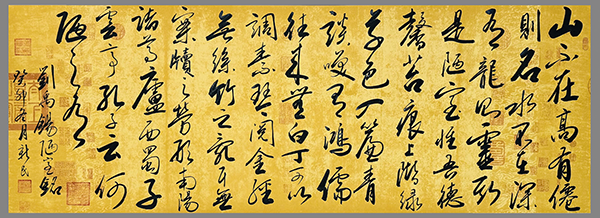 山不在高有僊
則名水不在深
有龍則靈斯
是陋室惟吾德
馨苔痕上階綠
草色入簾青
談笑有鴻儒
往來無白丁可以
調素琴閱金經
無絲竹之亂耳無
案牘之勞形南陽
諸葛廬西蜀子
雲亭孔子云何
陋之有
劉禹錫陋室銘
癸卯春月新民